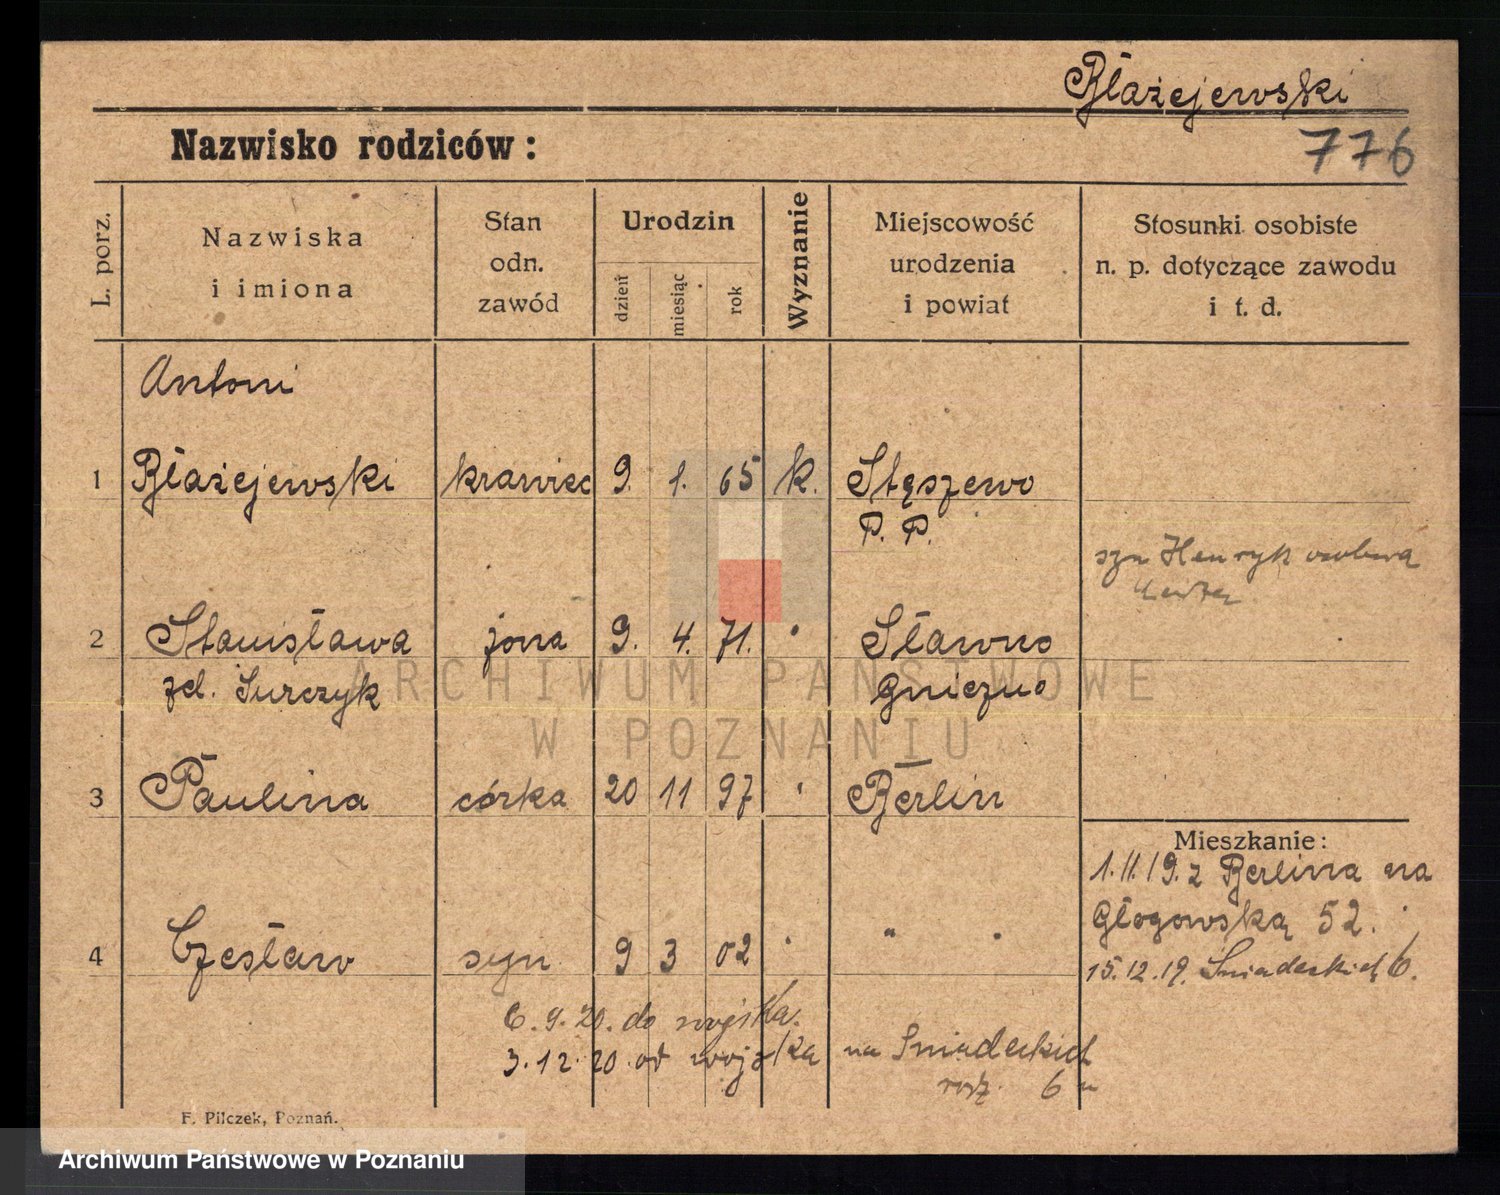 Błażejewski
776
Nazwisko rodziców :
L. porz.
Nazwiska
i imiona
Stan
odn.
zawód
Urodzin
dzień
miesiąc
rok
Wyznanie
Miejscowość
urodzenia
i powiat
Stosunki osobiste
n. p. dotyczące zawodu
i t. d.
Antoni
1 Błażejewski krawiec 9. 1. 65 k. Stęszewo
P. P.
syn Henryk osobna
2 Stanisława żona 9. 4. 71. " Sławno
zd. Surczyk Gniezno
ARCHIWUM PAŃSTWOWE
W POZNANIU
3 Paulina córka 20 11 97 " Berlin
Mieszkanie :
1.11.19. z Berlina na
Głogowską 52.
4 Czesław syn 9 3 02 " " "
15.12.19. Śniadeckich 6.
6.9.20. do wojska.
3.12.20. od wojska na Sniadeckich
6
F. Pilczek, Poznań.
Archiwum Państwowe w Poznaniu